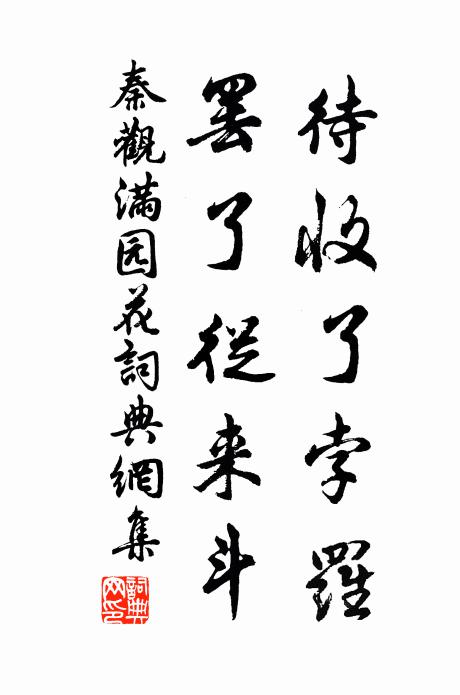 待收了孛羅
罢了從来斗
秦觀满园花詞典網集
詞典
网印